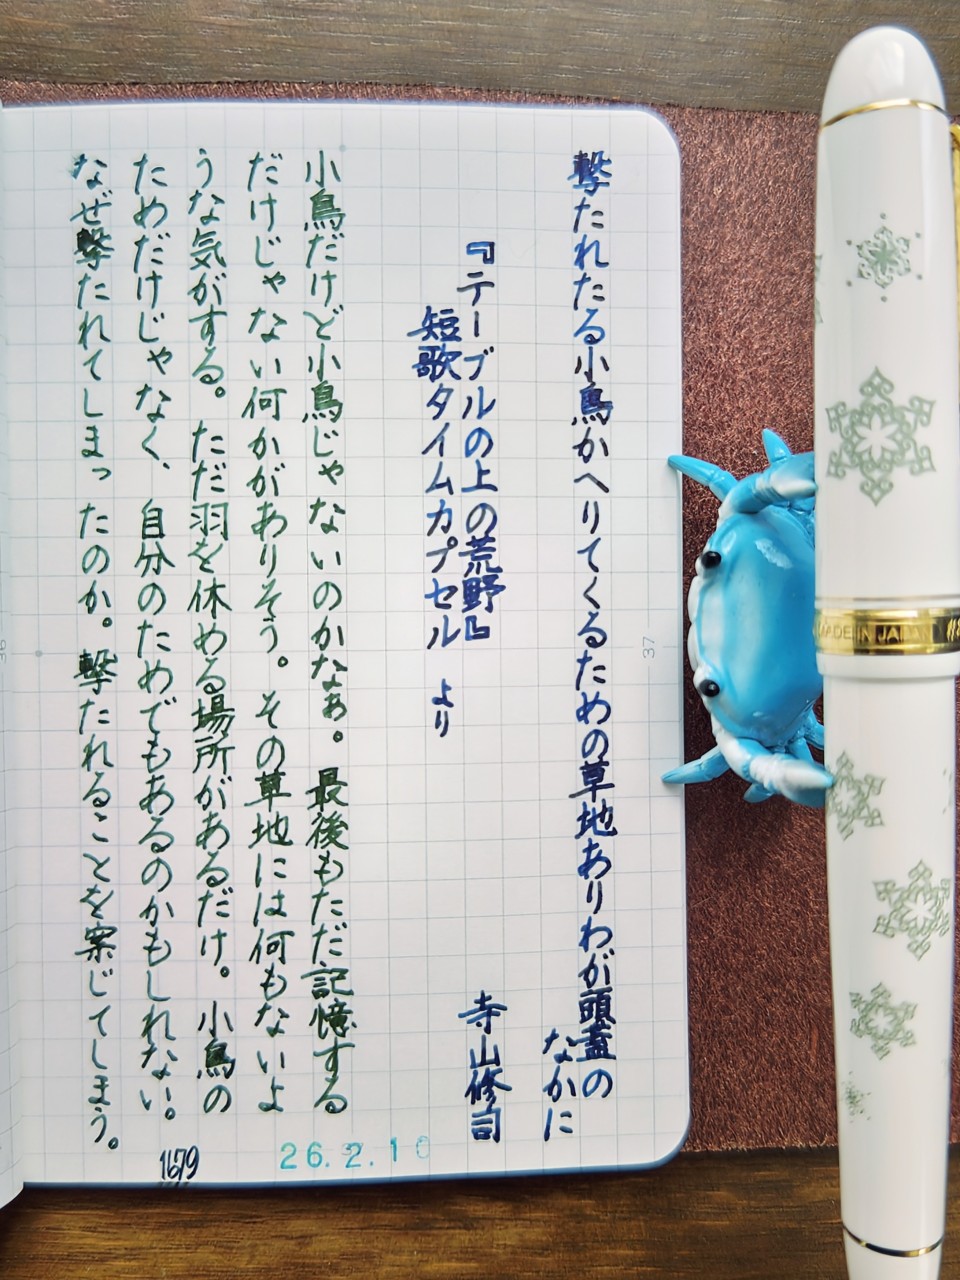 撃たれたる小鳥かへりてくるための草地ありわが頭蓋の
なかに
『テーブルの上の荒野』
寺山修司
短歌タイムカプセル より
小鳥だけど小鳥じゃないのかなぁ。最後もただ記憶する
だけじゃない何かがありそう。その草地には何もないよ
うな気がする。ただ羽を休める場所があるだけ。小鳥の
ためだけじゃなく、自分のためでもあるのかもしれない。
なぜ撃たれてしまったのか。撃たれることを案じてしまう。
1679
26.2.10
37
36
MADE IN JAPAN